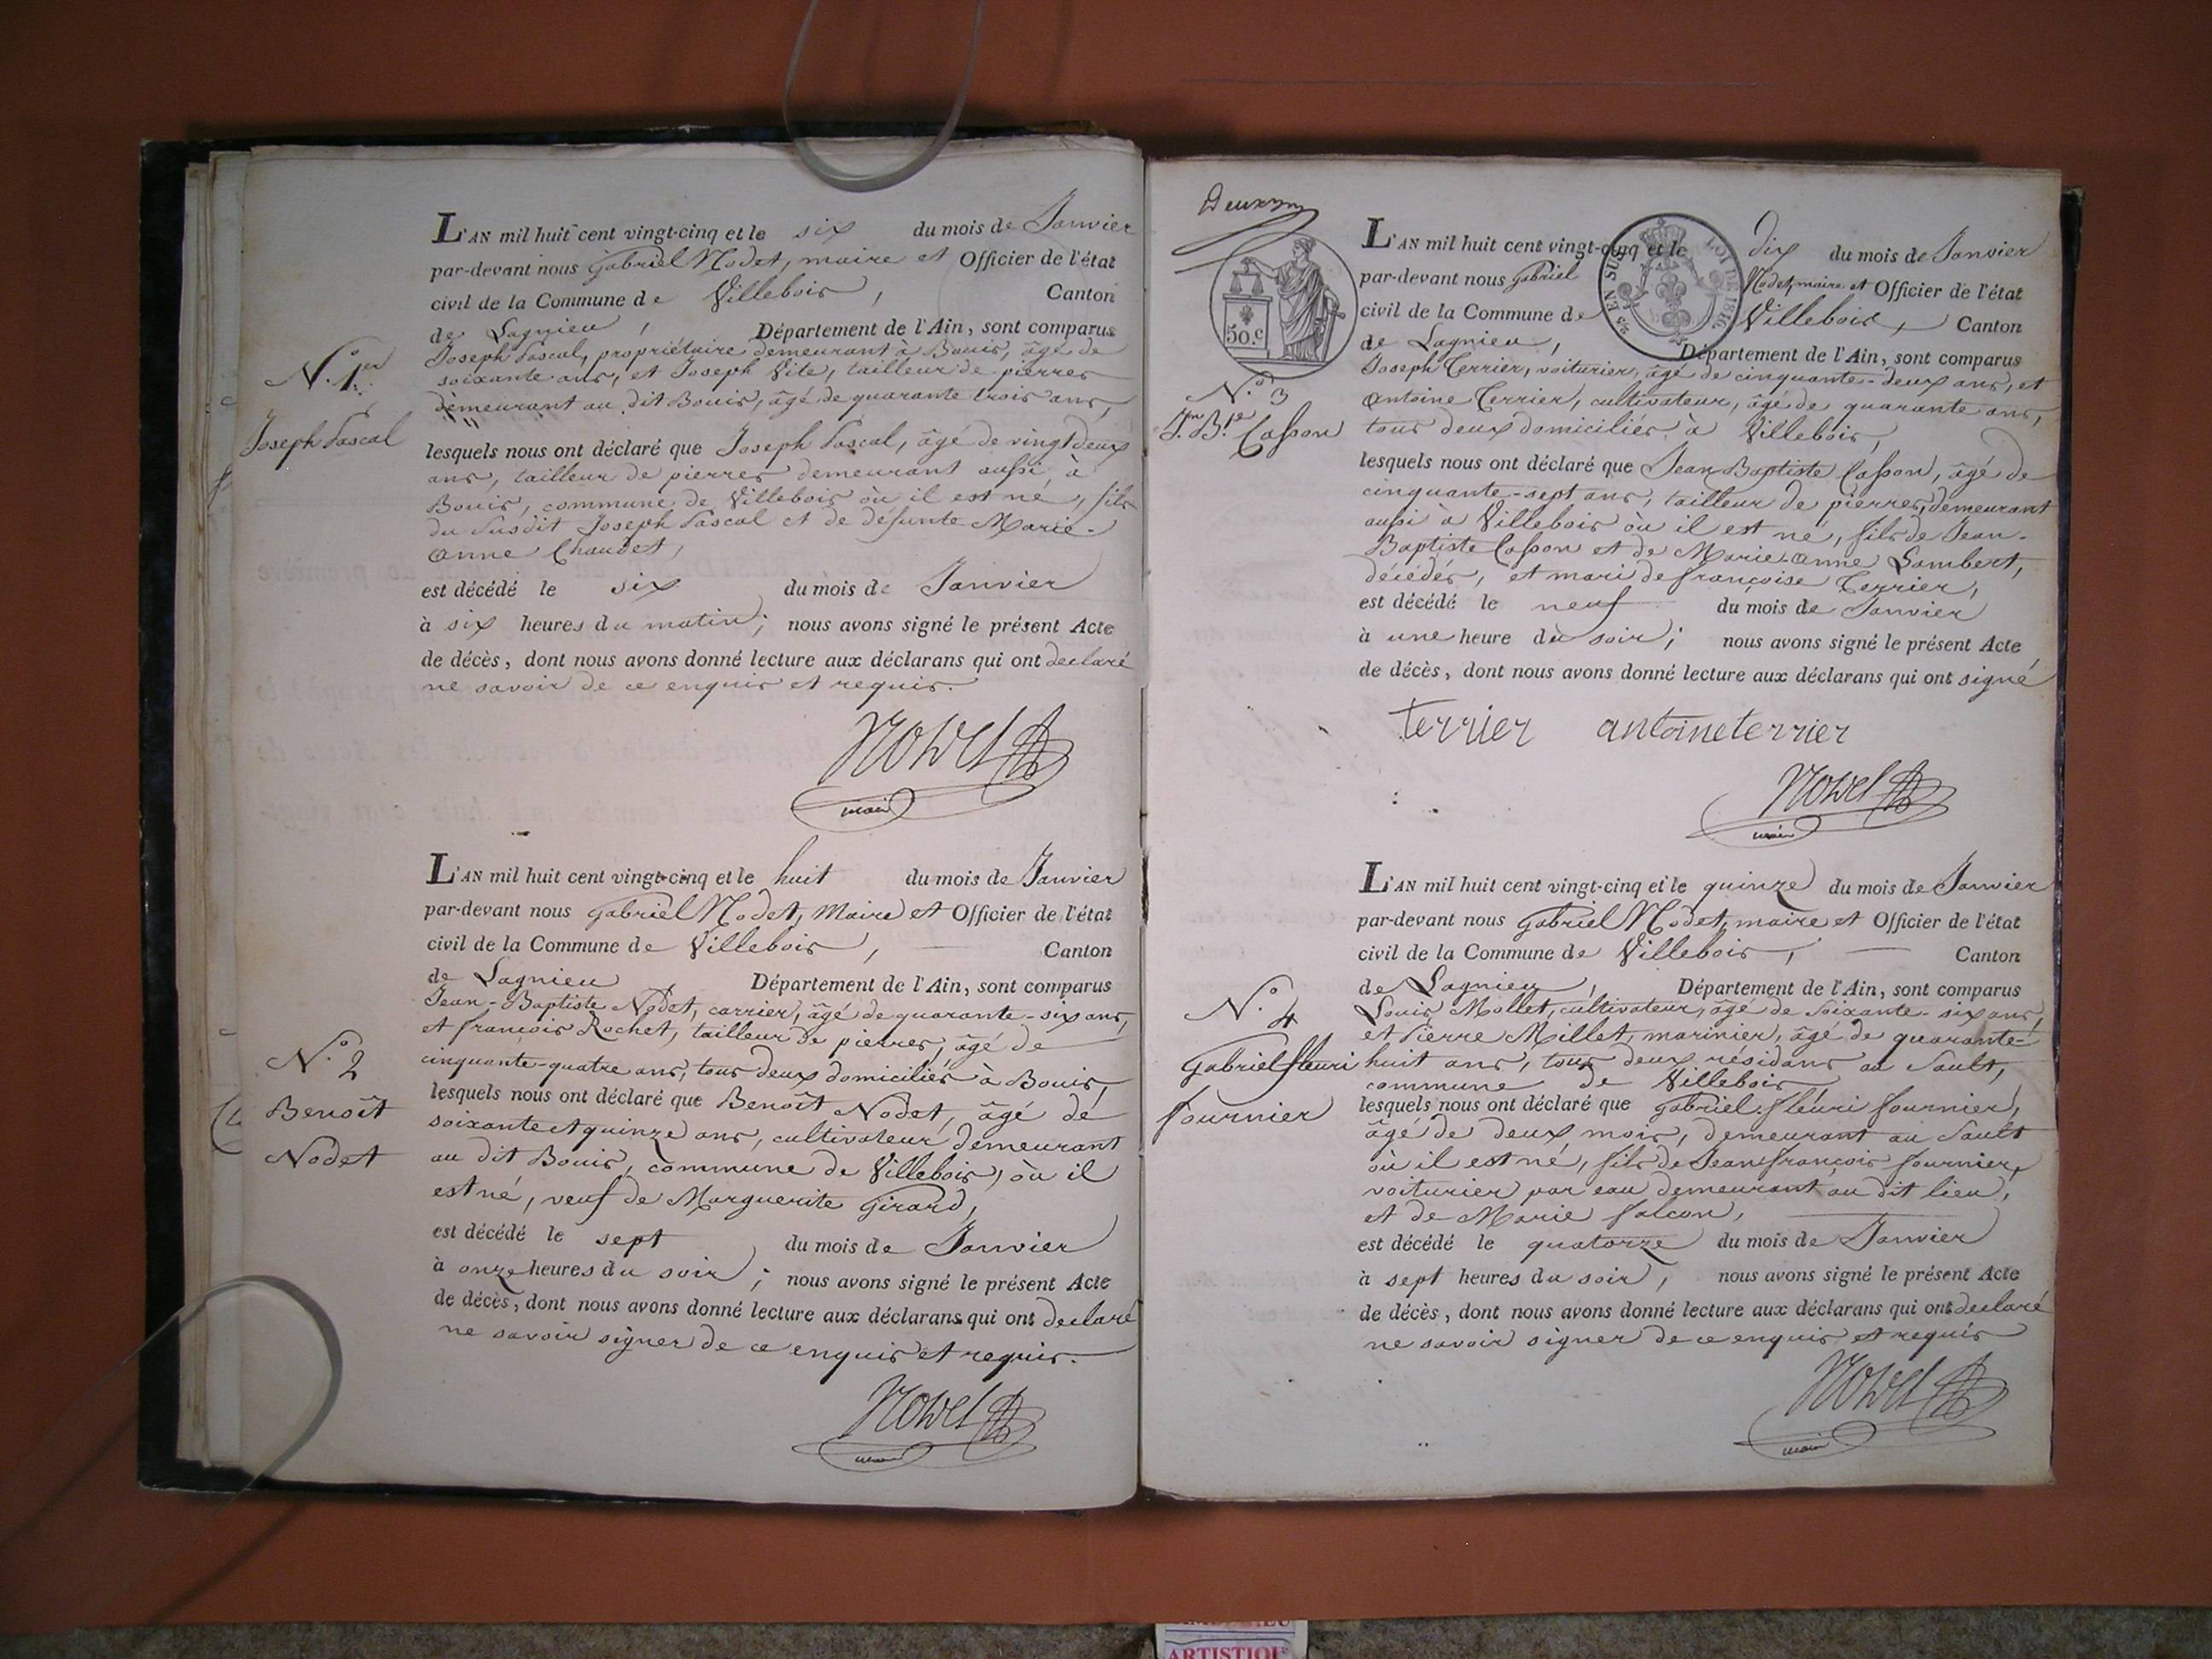 N.o 1er
Joseph Pascal
L'AN mil huit cent vingt-cinq et le six du mois de Janvier
par-devant nous Gabriel Nodet, maire et Officier de l'état
civil de la Commune de Villebois, Canton
de Lagnieu, Département de l'Ain, sont comparus
Joseph Pascal, propriétaire demeurant à Bouis, âgé de
soixante ans, et Joseph Vite, tailleur de pierres
demeurant au dit Bouis, âgé de quarante trois ans,
lesquels nous ont déclaré que Joseph Pascal, âgé de vingt deux
ans, tailleur de pierres demeurant aussi à
Bouis, commune de Villebois où il est né, fils
du susdit Joseph Pascal et de défunte Marie-
Anne Chaudet,
est décédé le six du mois de Janvier
à six heures du matin; nous avons signé le présent Acte
de décès, dont nous avons donné lecture aux déclarans qui ont déclaré
ne savoir de ce enquis et requis.
Nodet
maire
N.o 2
Benoît
Nodet
L'AN mil huit cent vingt-cinq et le huit du mois de Janvier
par-devant nous Gabriel Nodet, Maire et Officier de l'état
civil de la Commune de Villebois, Canton
de Lagnieu Département de l'Ain, sont comparus
Jean-Baptiste Nodet, carrier, âgé de quarante-six ans,
et françois Rochet, tailleur de pierres, âgé de
cinquante-quatre ans, tous deux domiciliés à Bouis,
lesquels nous ont déclaré que Benoît Nodet, âgé de
soixante et quinze ans, cultivateur demeurant
au dit Bouis, commune de Villebois, où il
est né, veuf de Marguerite Girard,
est décédé le sept du mois de Janvier
à onze heures du soir; nous avons signé le présent Acte
de décès, dont nous avons donné lecture aux déclarans qui ont déclaré
ne savoir signer de ce enquis et requis.
Nodet
maire
50.c
5c EN SUS
LOI DE 1816
N.o 3
J.n B.te Casson
L'AN mil huit cent vingt-cinq et le dix du mois de Janvier
par-devant nous Gabriel Nodet, maire et Officier de l'état
civil de la Commune de Villebois, Canton
de Lagnieu, Département de l'Ain, sont comparus
Joseph Terrier, voiturier, âgé de cinquante-deux ans, et
Antoine Terrier, cultivateur, âgé de quarante ans,
tous deux domiciliés à Villebois,
lesquels nous ont déclaré que Jean Baptiste Casson, âgé de
cinquante-sept ans, tailleur de pierres, demeurant
aussi à Villebois où il est né, fils de Jean-
Baptiste Casson et de Marie-Anne Lambert,
décédés, et mari de françoise Terrier,
est décédé le neuf du mois de Janvier
à une heure du soir; nous avons signé le présent Acte
de décès, dont nous avons donné lecture aux déclarans qui ont signé
terrier antoine terrier
Nodet
maire
N.o 4
Gabriel fleuri
fournier
L'AN mil huit cent vingt-cinq et le quinze du mois de Janvier
par-devant nous Gabriel Nodet, maire et Officier de l'état
civil de la Commune de Villebois, Canton
de Lagnieu, Département de l'Ain, sont comparus
Louis Mollet, cultivateur, âgé de soixante-six ans,
et Pierre Millet, marinier, âgé de quarante-
huit ans, tous deux résidans au Sault,
commune de Villebois
lesquels nous ont déclaré que Gabriel fleuri fournier,
âgé de deux mois, demeurant au Sault
où il est né, fils de Jean françois fournier,
voiturier par eau demeurant au dit lieu,
et de Marie falcon,
est décédé le quatorze du mois de Janvier
à sept heures du soir, nous avons signé le présent Acte
de décès, dont nous avons donné lecture aux déclarans qui ont déclaré
ne savoir signer de ce enquis et requis
Nodet
maire